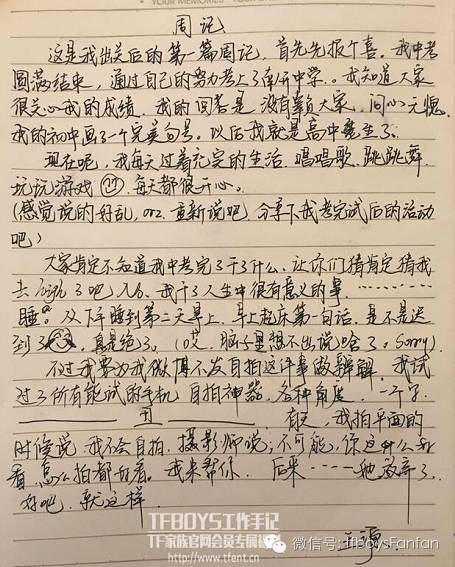 YOUR MEMORIES
周记
这是我出关后的第一篇周记，首先先报个喜。我中考
圆满结束，通过自己的努力考上了南开中学。。我知道大家
很关心我的成绩，我的回答是 没有辜负大家、问心无愧
我的初中画了一个完美句号。以后我就是高中魔王了。
现在呢，我每天过着充实的生活 唱唱歌 跳跳舞
玩玩游戏 每天都很开心。
(感觉说的好乱，orz. 重新说吧 分享下我考完试后的活动
吧)
大家肯定不知道我中考完了干了什么，让你们猜肯定猜我
去 玩了吧 我干了人生中很有意义的事………
睡。从下午睡到第二天早上，早上起床第一句话，是不是迟
到了 真是绝了。(哎，脑子里想不出说啥了。Sorry).
不过我要为我微博不发自拍这件事做辩解，我试
过了所有能试的手机 自拍神器，各种角度，一个字
丑 有天，我拍平面的
时候说 我不会自拍。摄影师说：不可能，你这什么
看 怎么拍都好看。我来帮你。后来……她放弃了。
好吧，就这样.
王源
TFBOYS工作手记
TF家族官网会员专属
http://www.tfent.cn
微信号: tfboysFanfan